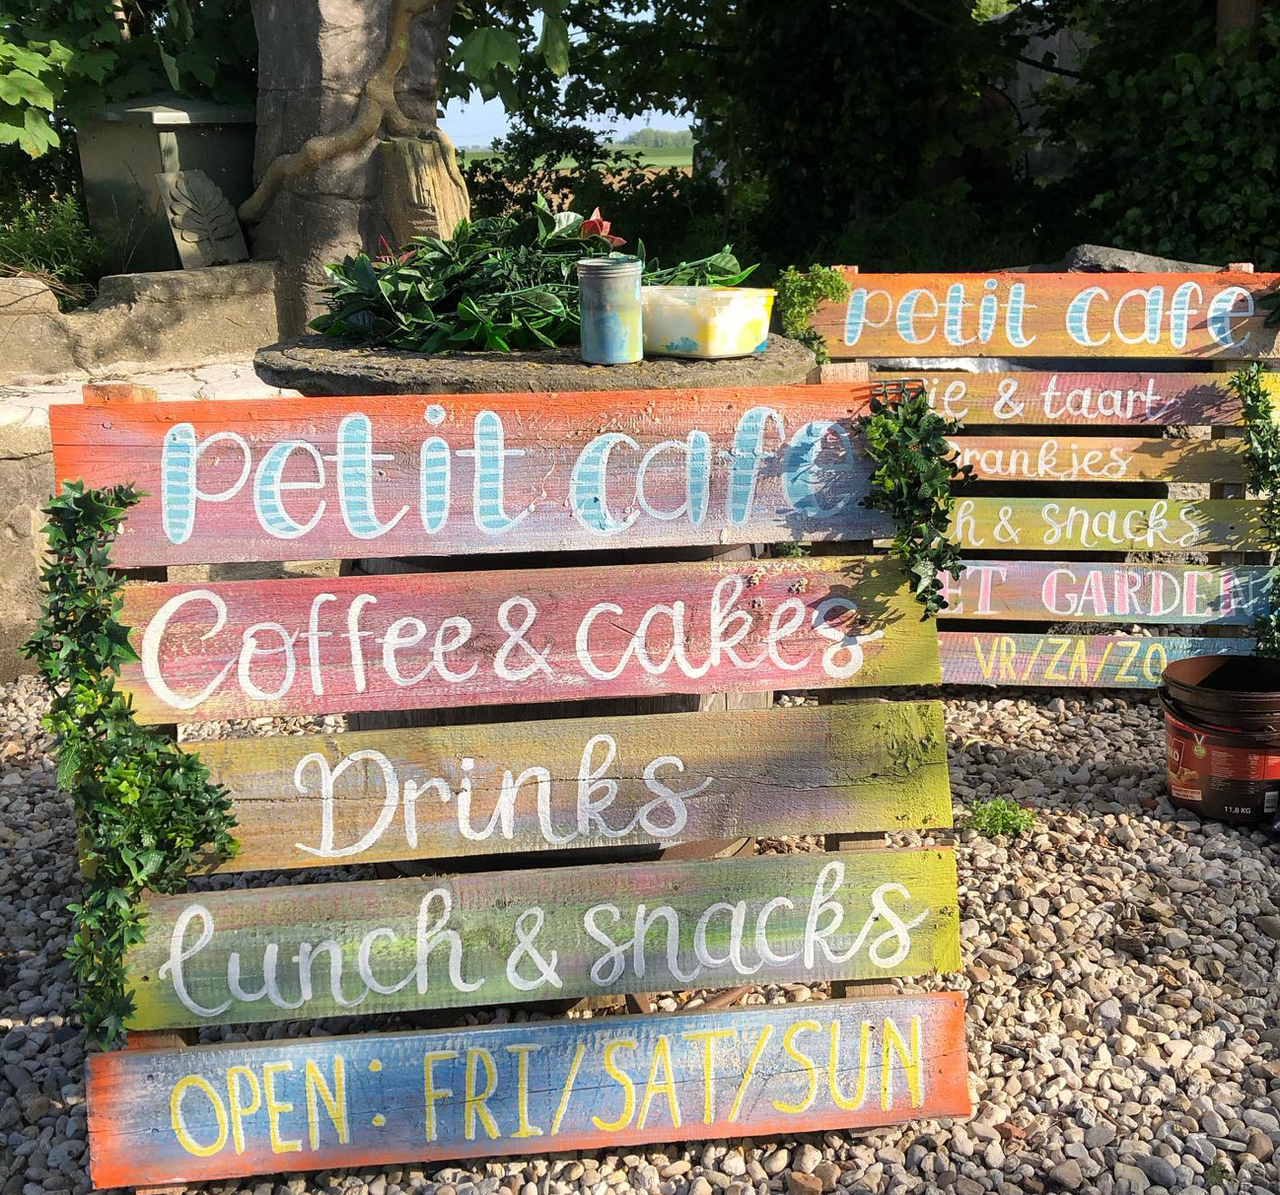 petit cafe
Coffee & cakes
Drinks
lunch & snacks
OPEN: FRI/SAT/SUN
petit cafe
& taart
Drankjes
& snacks
GARDEN
VR/ZA/ZO
11,8 KG